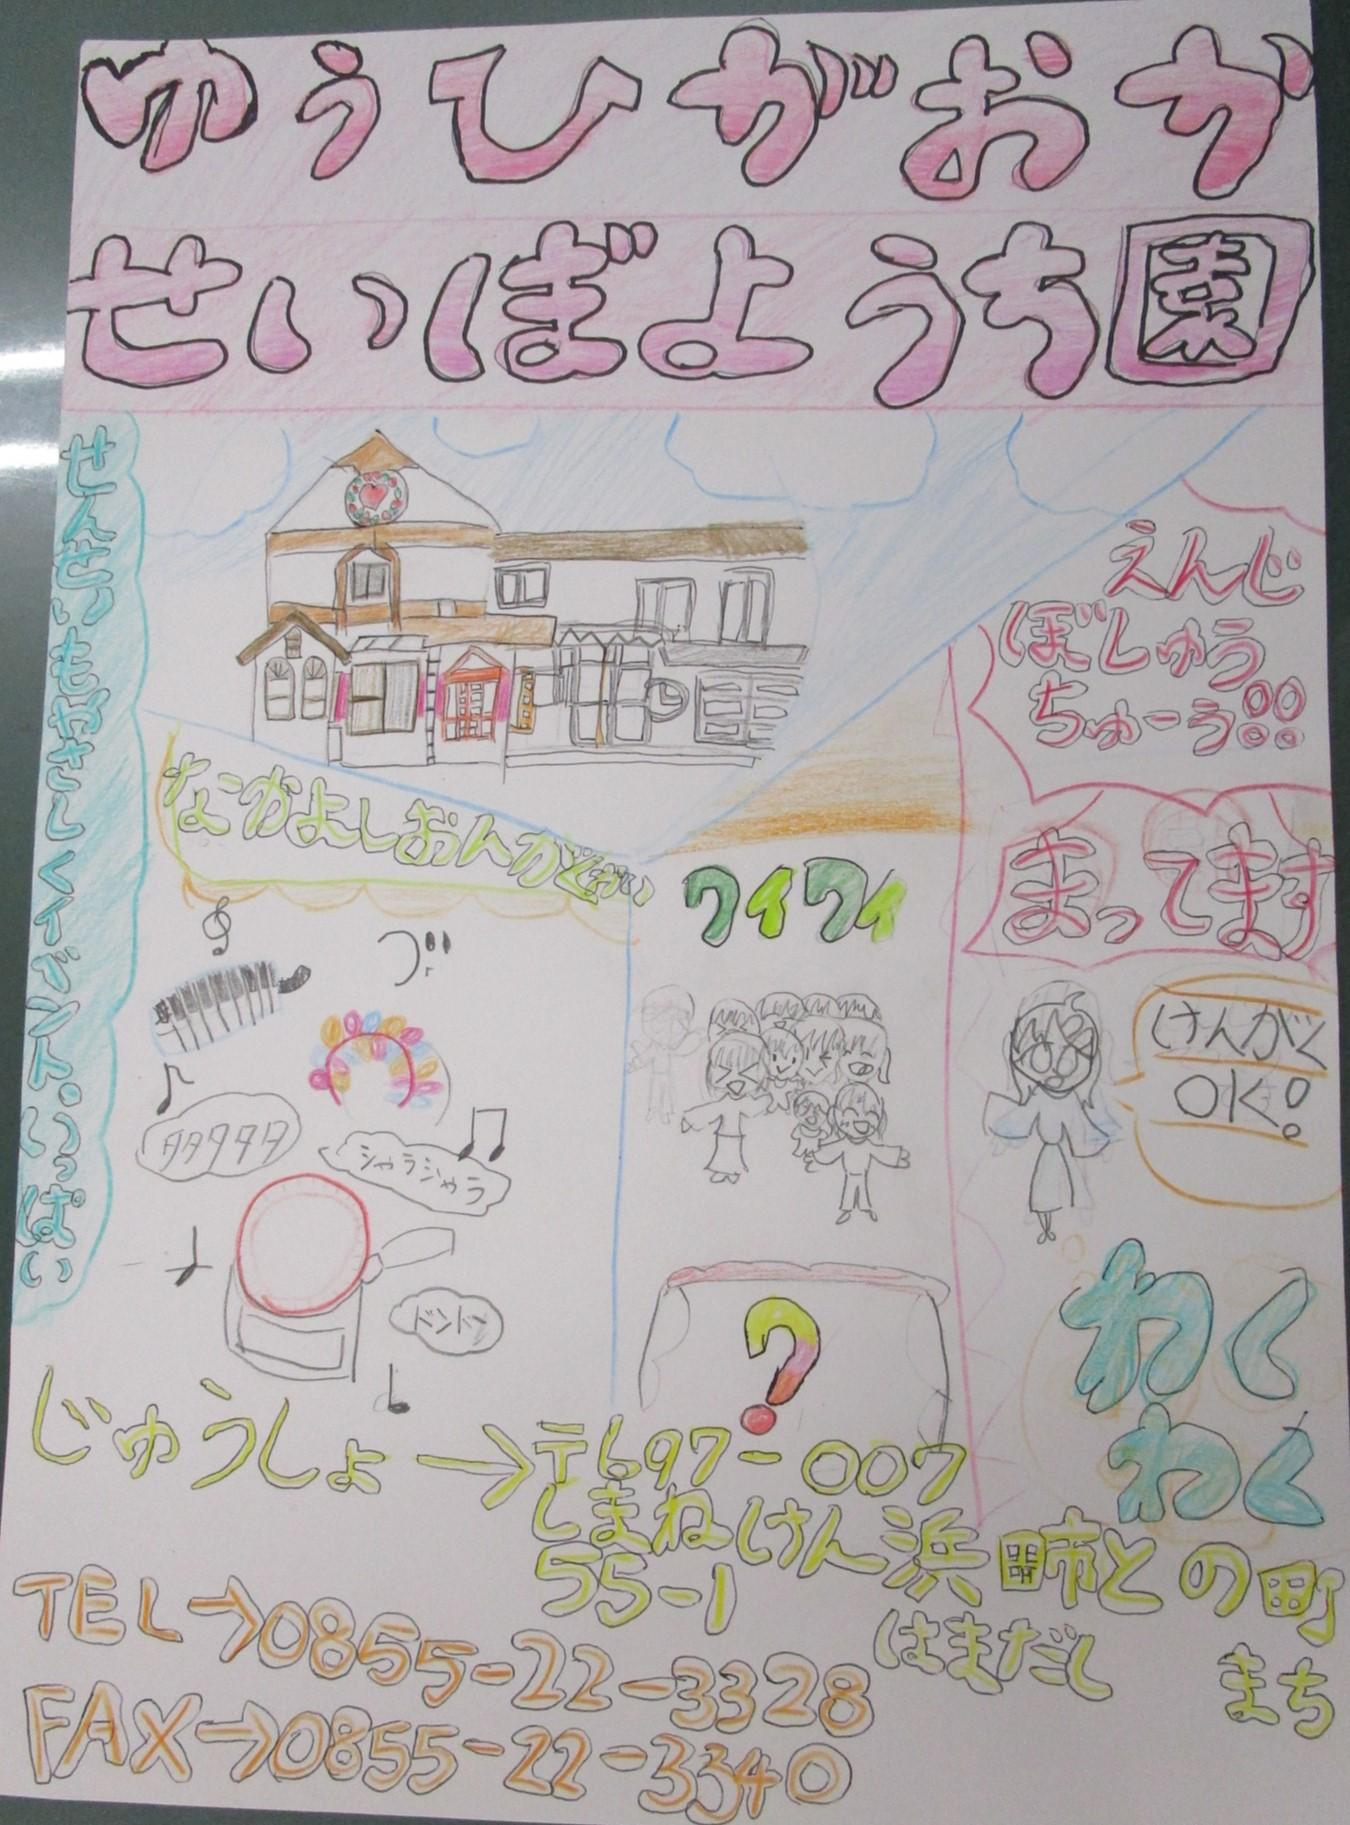 ゆうひがおか
せいぼようち園
せんせいもやさしくイベントいっぱい
えんじ
ぼしゅう
ちゅーう!!
まってます
なかよしおんがくかい
ワイワイ
けんがく
OK!
タタタタタ
シャラジャラ
ドンドン
?
わく
わく
じゅうしょ→〒697-007
しまねけん浜田市との町
55-1
はまだし
まち
TEL→0855-22-3328
FAX→0855-22-3340